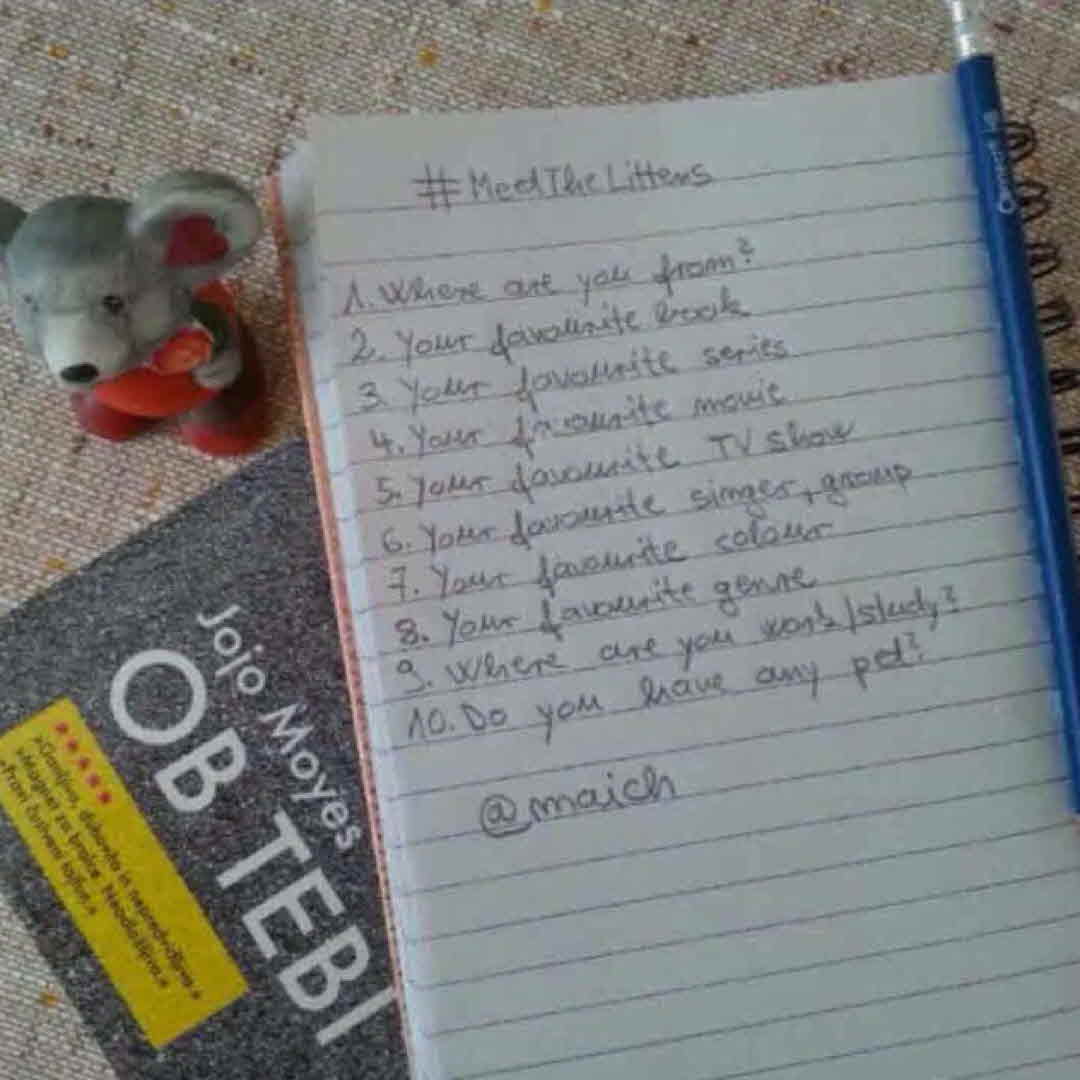 #MeetTheLittens
1. Where are you from?
2. Your favourite book
3. Your favourite series
4. Your favourite movie
5. Your favourite TV show
6. Your favourite singer, group
7. Your favourite colour
8. Your favourite genre
9. Where are you work/study?
10. Do you have any pet?
@maich
Jojo Moyes
OB TEBI